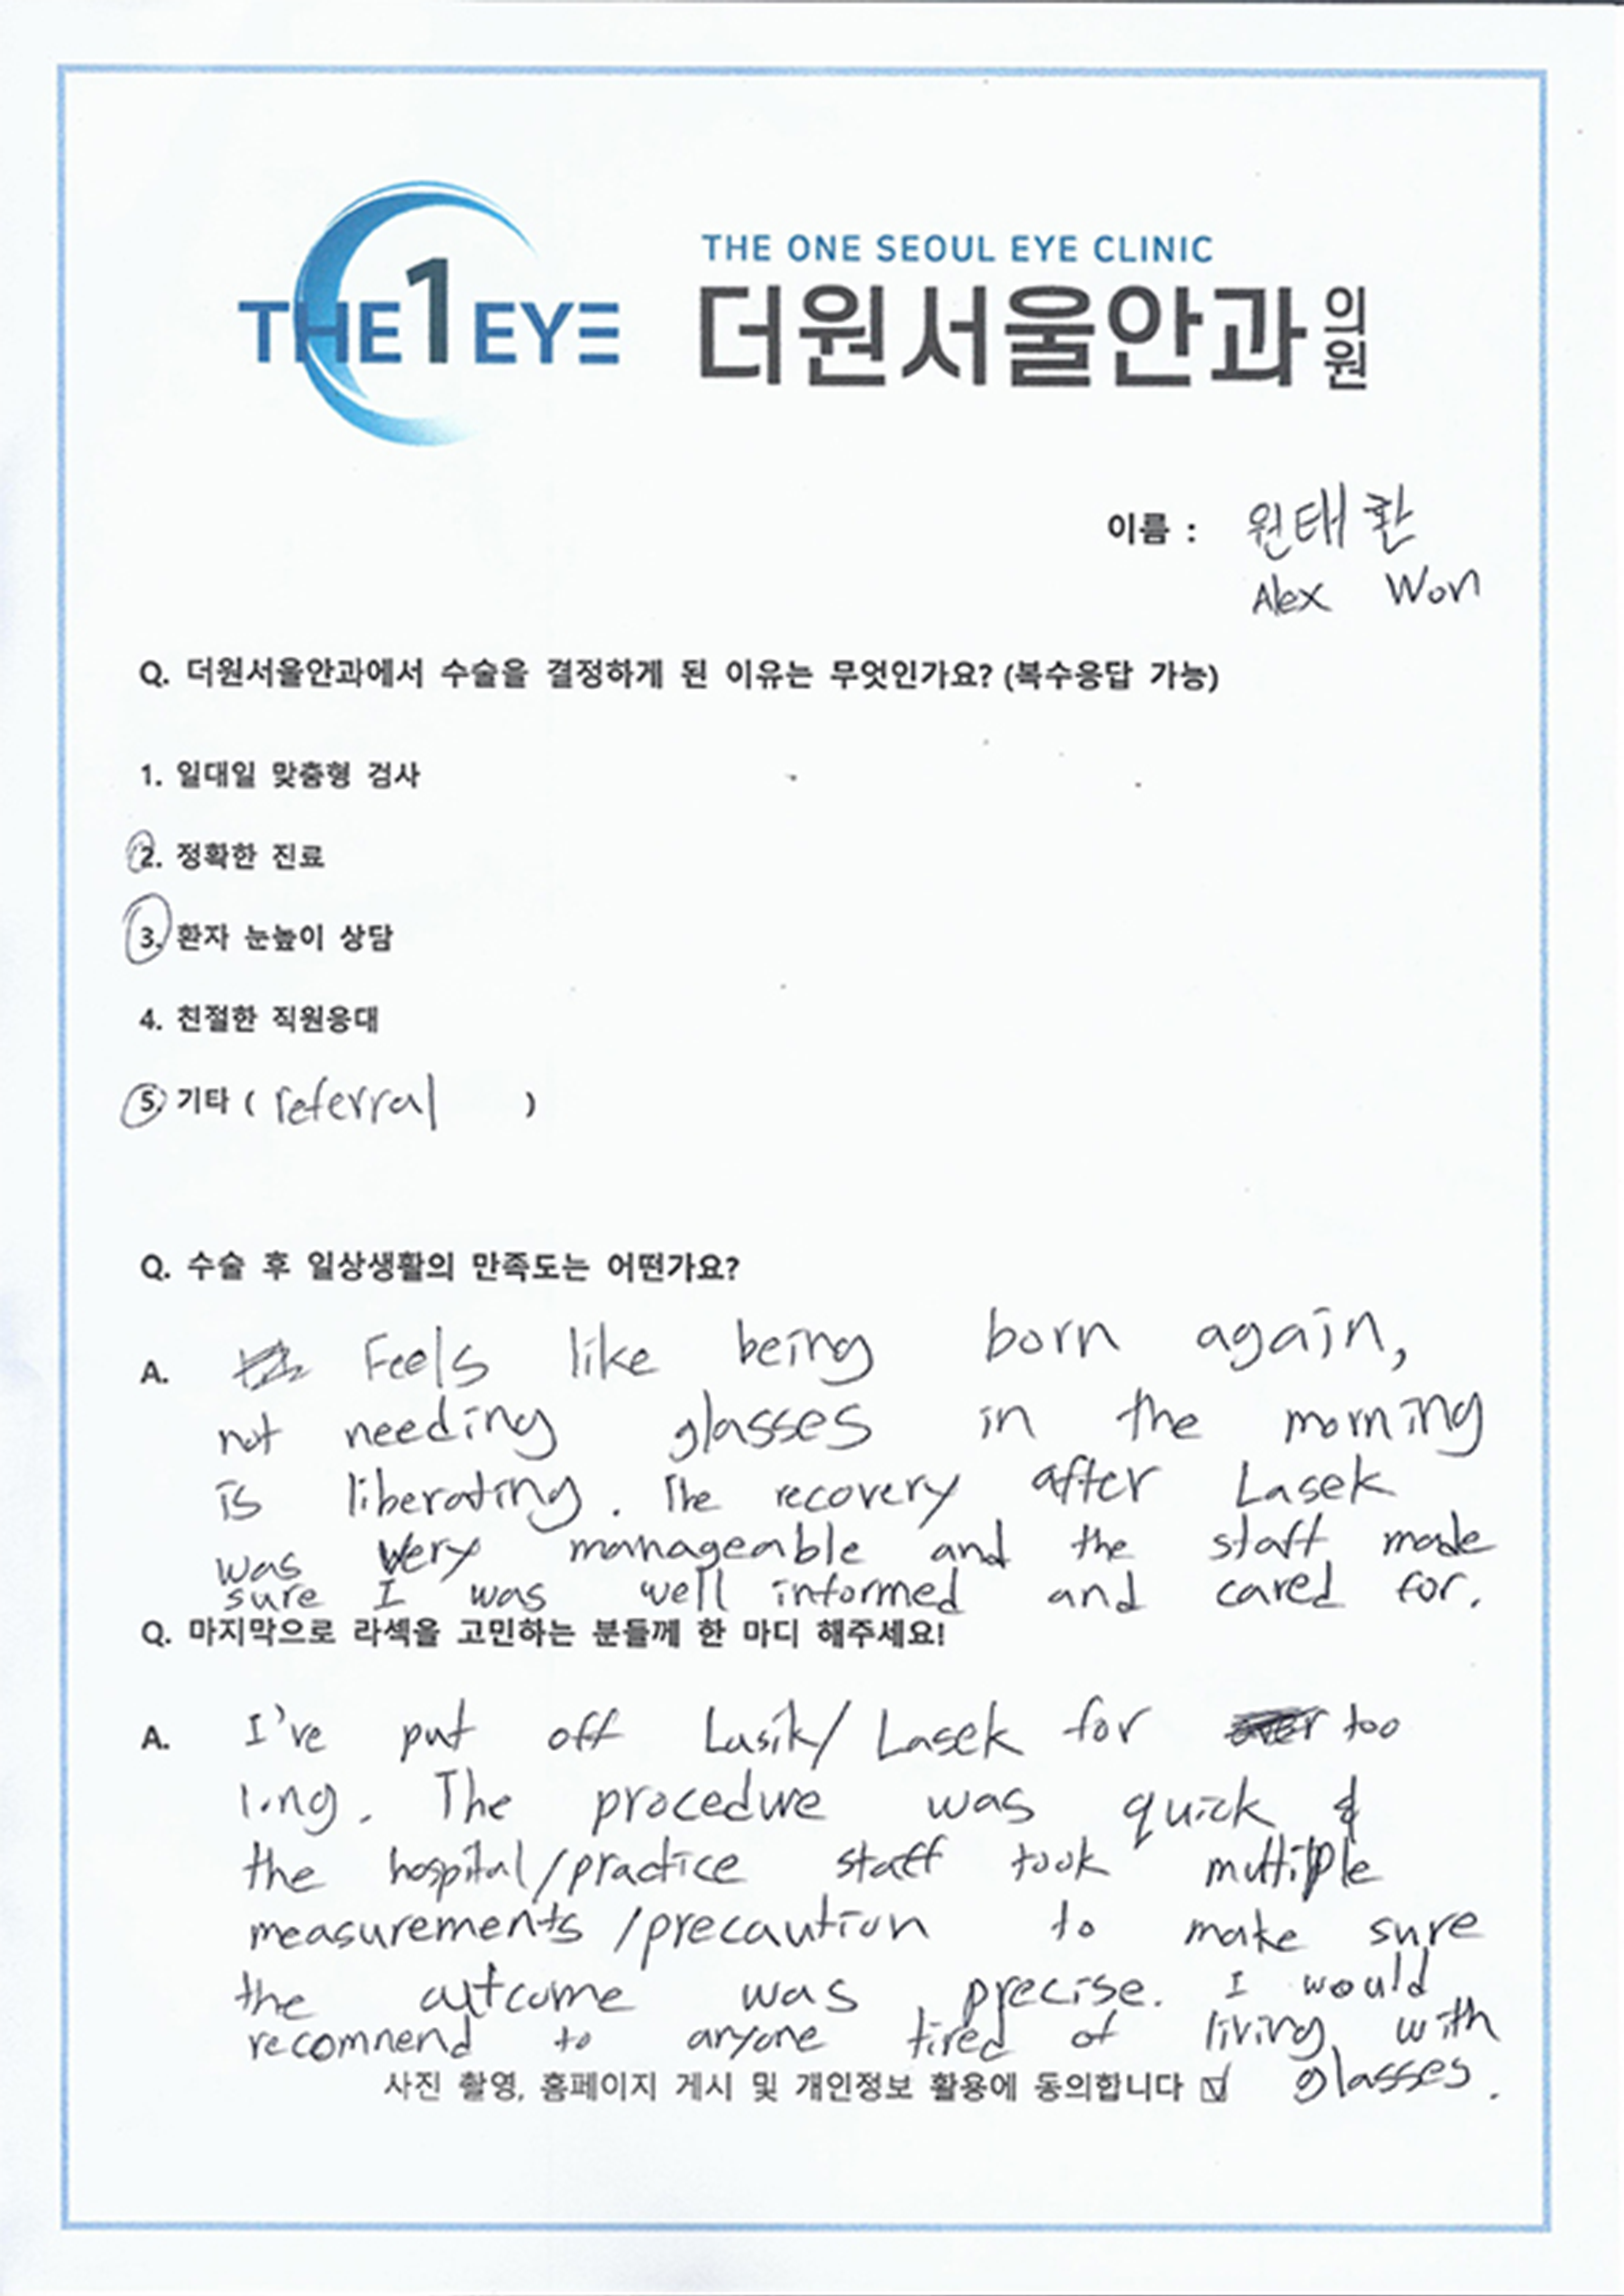 THE 1 EYE
THE ONE SEOUL EYE CLINIC
더원서울안과의원
이름 : 원태환
Alex Won
Q. 더원서울안과에서 수술을 결정하게 된 이유는 무엇인가요? (복수응답 가능)
1. 일대일 맞춤형 검사
2. 정확한 진료
3. 환자 눈높이 상담
4. 친절한 직원응대
5. 기타 ( referral )
Q. 수술 후 일상생활의 만족도는 어떤가요?
A. Feels like being born again,
not needing glasses in the morning
is liberating. The recovery after Lasek
was very manageable and the staff made
sure I was well informed and cared for.
Q. 마지막으로 라섹을 고민하는 분들께 한 마디 해주세요!
A. I've put off Lasik/ Lasek for too
long. The procedure was quick &
the hospital/practice staff took multiple
measurements /precaution to make sure
the outcome was precise. I would
recomnend to anyone tired of living with
glasses.
사진 촬영, 홈페이지 게시 및 개인정보 활용에 동의합니다 ☑